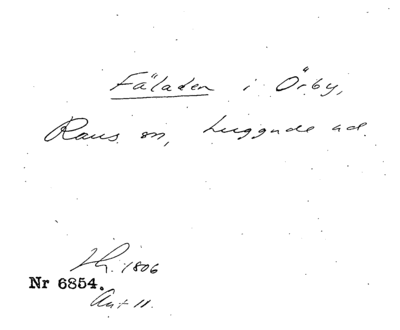 Fäladen i Örby,
Raus sn, Luggude hd.
Lh. 1806
Nr 6854.
Akt 11.